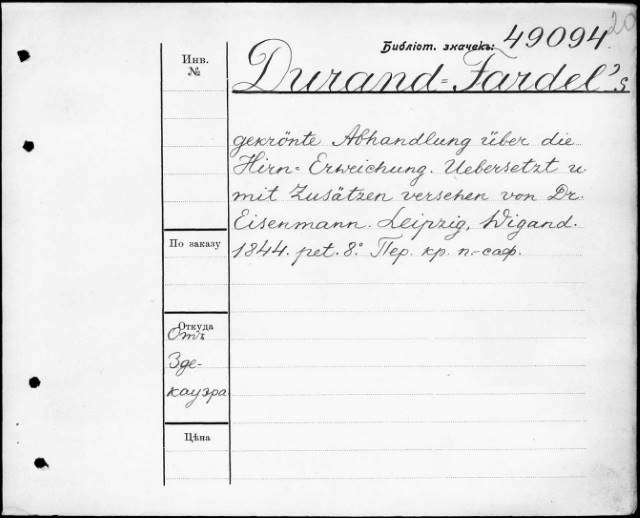 20
Библіот. значекъ: 49094
Инв.
№
Durand=Fardel's
gekrönte Abhandlung über die
Hirn=Erweichung. Uebersetzt u.
mit Zusätzen versehen von Dr.
Eisenmann. Leipzig, Wigand.
1844. pet. 8.° Пер. кр. п.-саф.
По заказу
Откуда
Отъ
Зде-
кауэра
Цѣна